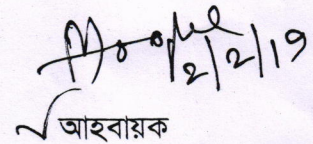 2/2/19
আহবায়ক